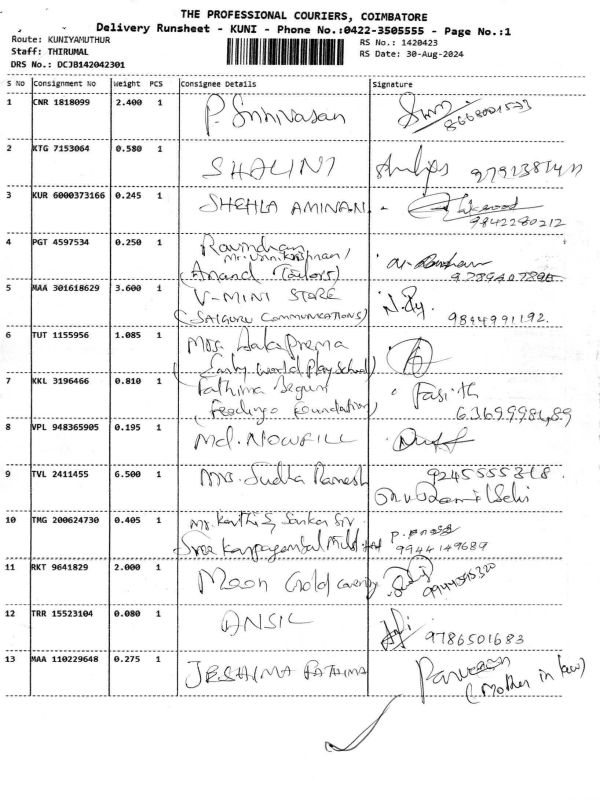 THE PROFESSIONAL COURIERS, COIMBATORE
Delivery Runsheet - KUNI - Phone No.:0422-3505555 - Page No.:1
Route: KUNIYAMUTHUR
RS No.: 1420423
Staff: THIRUMAL
RS Date: 30-Aug-2024
DRS No.: DCJB142042301
S No Consignment No Weight PCS Consignee Details Signature
1 CNR 1818099 2.400 1 P. Srinivasan
8668001533
2 KTG 7153064 0.580 1 SHALINI
3 KUR 6000373166 0.245 1 SHEHLA AMINAN
9842280212
4 PGT 4597534 0.250 1 Ravindran
Mr. Unnikrishnan /
(Anand Tailors)
5 MAA 301618629 3.600 1 V-MINI STORE
(SAIGURU COMMUNICATIONS) 9844991192.
6 TUT 1155956 1.085 1 Mrs.
World Play School)
7 KKL 3196466 0.810 1 Fathima Begum Fasith
Foundation)
8 VPL 948365905 0.195 1 Md. NOWFILL
9 TVL 2411455 6.500 1 Mrs. Sudha Ramesh 9245555318.
10 TMG 200624730 0.405 1 Mr. Karthi & Sankar
Sree Karpagambal 9944149689
11 RKT 9641829 2.000 1 Moon Gold covering
12 TRR 15523104 0.080 1 ANSIL
9786501683
13 MAA 110229648 0.275 1 JESHIMA FATHIMA Parveen
(Mother in law)